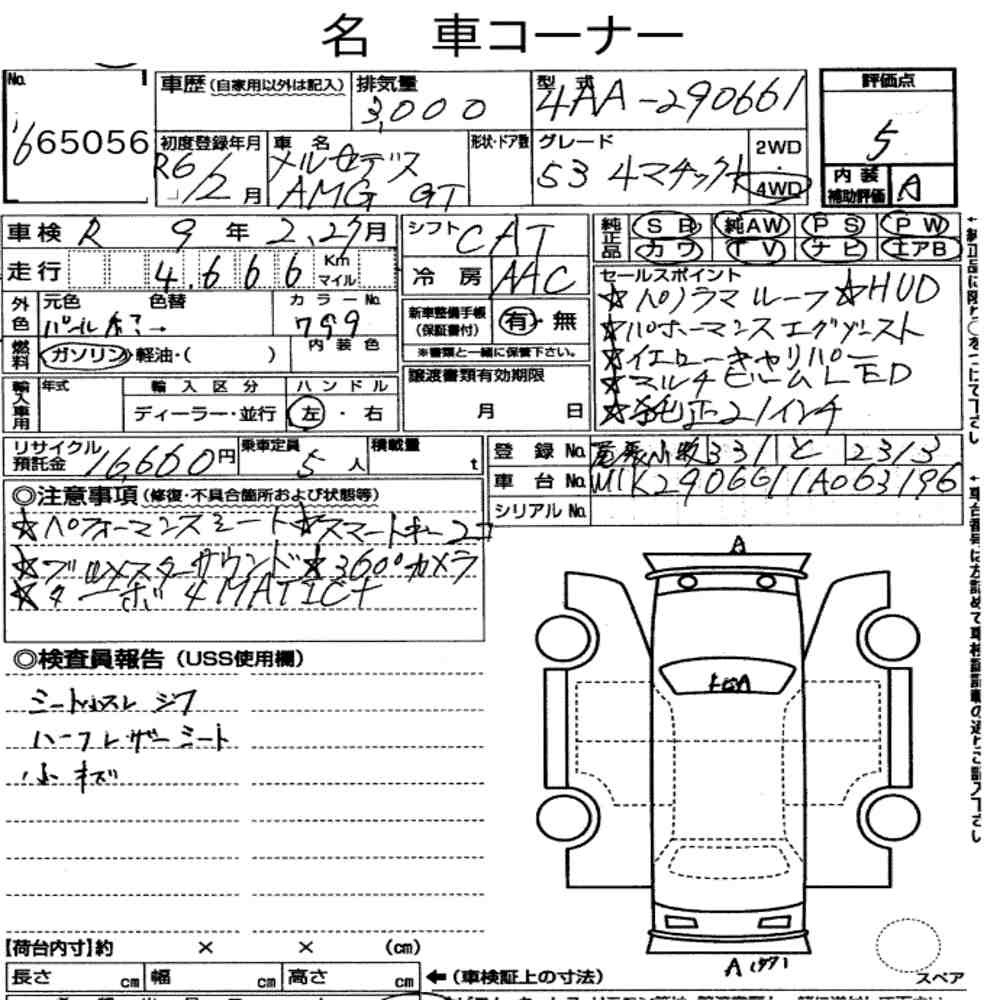 名 車コーナー
No. 1
車歴 (自家用以外は記入) 排気量 3,000
型式 4AA-290661
評価点 5
665056
初度登録年月 R6/2月
車名 メルセデス AMG GT
形状・ドア数
グレード 53 4マチック+
2WD・4WD
内装補助評価 A
車検 R 9年 2,27月
シフト CAT
純正品 SB 純AW PS PW
カワ TV ナビ エアB
走行 4,666 Km マイル
冷房 AAC
セールスポイント
☆パノラマルーフ ☆HUD
☆パホーマンスエグゾースト
☆イエローキャリパー
☆マルチビームLED
☆純正21インチ
外色 元色 色替 カラーNo. 799
新車整備手帳(保証書付) 有・無
※書類と一緒に保管下さい。
燃料 ガソリン・軽油・( ) 内装色
輸入車用 年式 輸入区分 ハンドル
ディーラー・並行 左・右
譲渡書類有効期限
月 日
リサイクル預託金 16,660円 乗車定員 5人 積載量 t
登録No. 331 と 2313
車台No. W1K2906611A063196
シリアルNo.
◎注意事項 (修復・不具合箇所および状態等)
☆パフォーマンスシート☆スマートキー2コ
☆ブルメスターサウンド☆360°カメラ
☆ターボ 4MATIC+
◎検査員報告 (USS使用欄)
シート小スレ シワ
ハーフレザーシート
小キズ
A
A 1971
スペア
【荷台内寸】約 × × (cm)
長さ cm 幅 cm 高さ cm ←(車検証上の寸法)